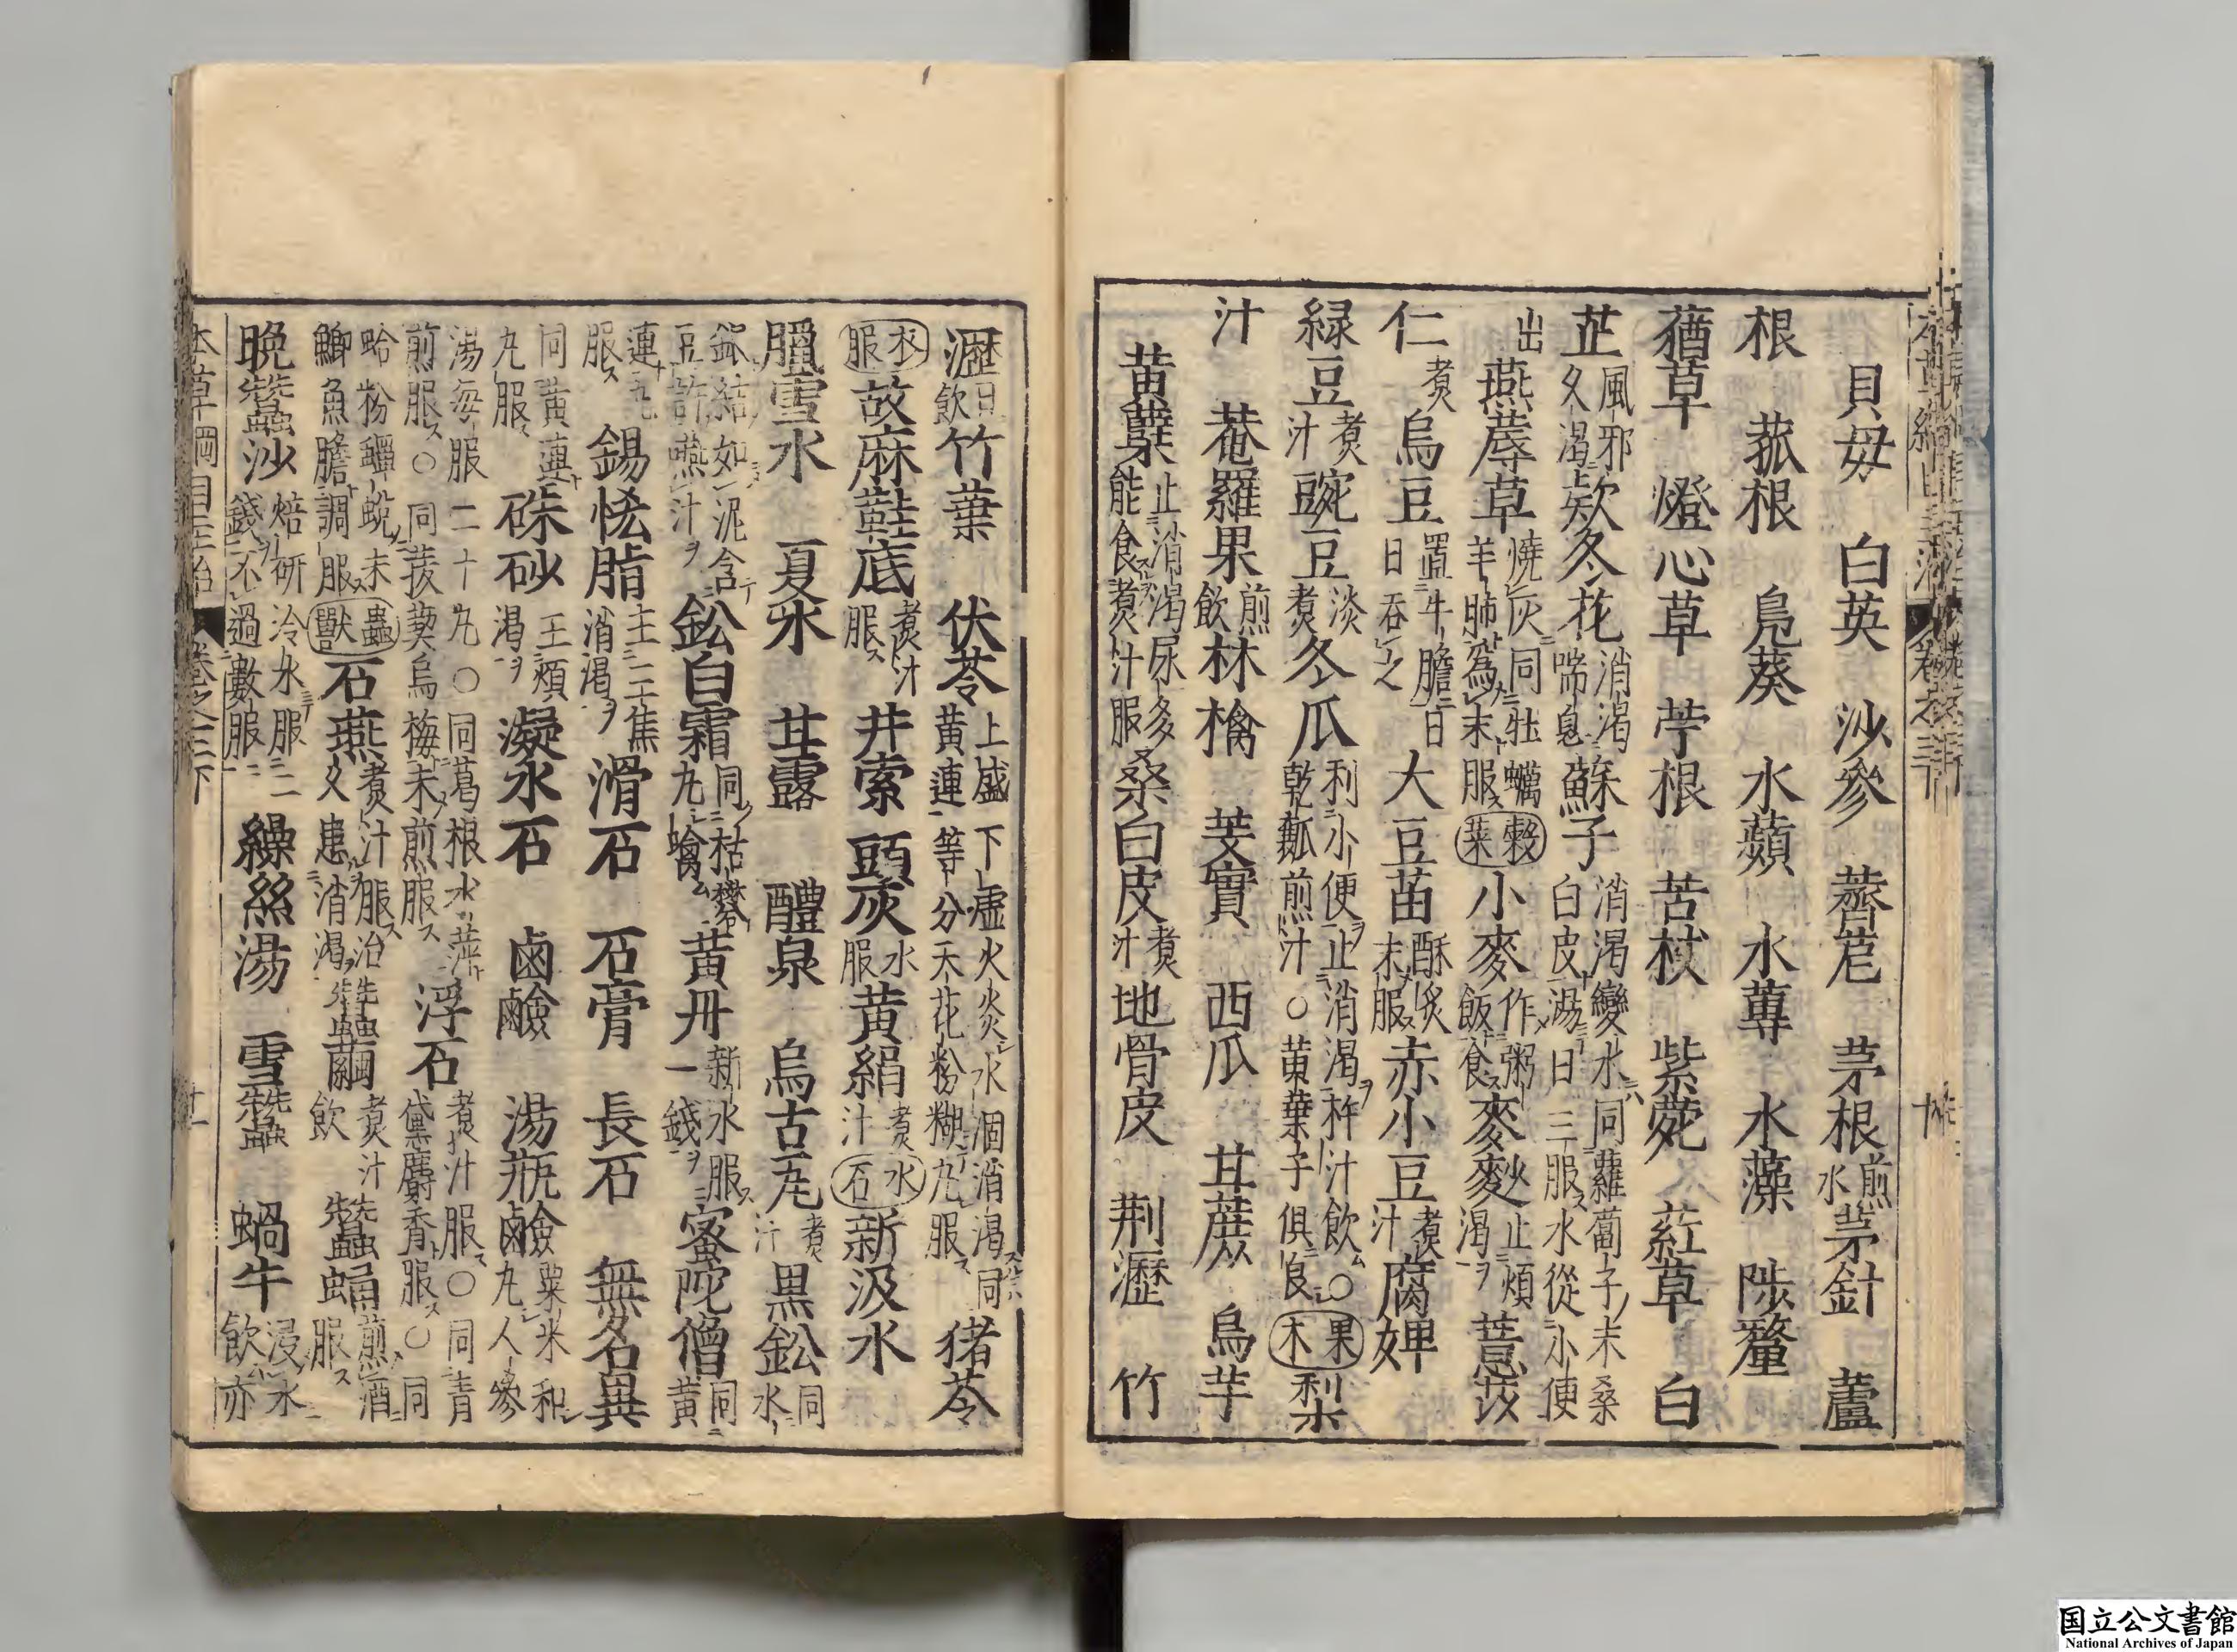 貝母　白英　沙參　薺苨　茅根煎水茅針　蘆
根　菰根　鳬葵　水蘋　水蓴　水藻　陟釐
蕕草　燈心草　苧根　苦杖　紫菀　葒草　白
芷風邪久渴款冬花消渴喘息蘇子消渴變水同蘿蔔子末桑白皮湯日三服水從小便
出　燕蓐草燒灰同牡蠣羊肺爲末服穀菜小麥作粥飯食麥麨止煩渴薏苡
仁煮　烏豆置牛膽日日吞之　大豆苗酥炙末服赤小豆煮汁腐婢
緑豆煮汁豌豆淡煮冬瓜利小便止消渴杵汁飲○乾瓤煎汁○苗葉子俱良果木梨
汁　菴羅果煎飲林檎　芰實　西瓜　甘蔗　烏芋
黄蘗止消渴尿多能食煮汁服桑白皮煮汁地骨皮　荆瀝　竹
瀝日飲竹葉　伏苓上盛下虚火炎水涸消渴同黄連等分天花粉糊丸服　猪苓
衣服故麻鞋底煮汁服井索頭灰水服黄絹煮汁水石新汲水
臘雪水　夏氷　甘露　醴泉　烏古瓦煮汁黒鈆同水
銀結如泥含豆許嚥汁鈆白霜同枯礬丸噙黄丹新水服一錢蜜陀僧同黄
連丸服　錫恡脂主三焦消渴滑石　石膏　長石　無名異
同黄連丸服硃砂主煩渴凝水石　鹵鹼　湯瓶鹼粟米和丸人參
湯毎服二十丸○同葛根水萍煎服○同菝葜烏梅末煎服浮石煮汁服○同青黛麝香服○同
蛤粉蟬蛻末鯽魚膽調服蟲獸石燕煮汁服治久患消渴蠶繭煮汁飲　蠶蛹煎酒服
晩蠶沙焙研冷水服二錢不過數服繰絲湯　雪蠶　蝸牛浸水飲亦
本草綱目主治　卷之三下　十一
国立公文書館
National Archives of Japan